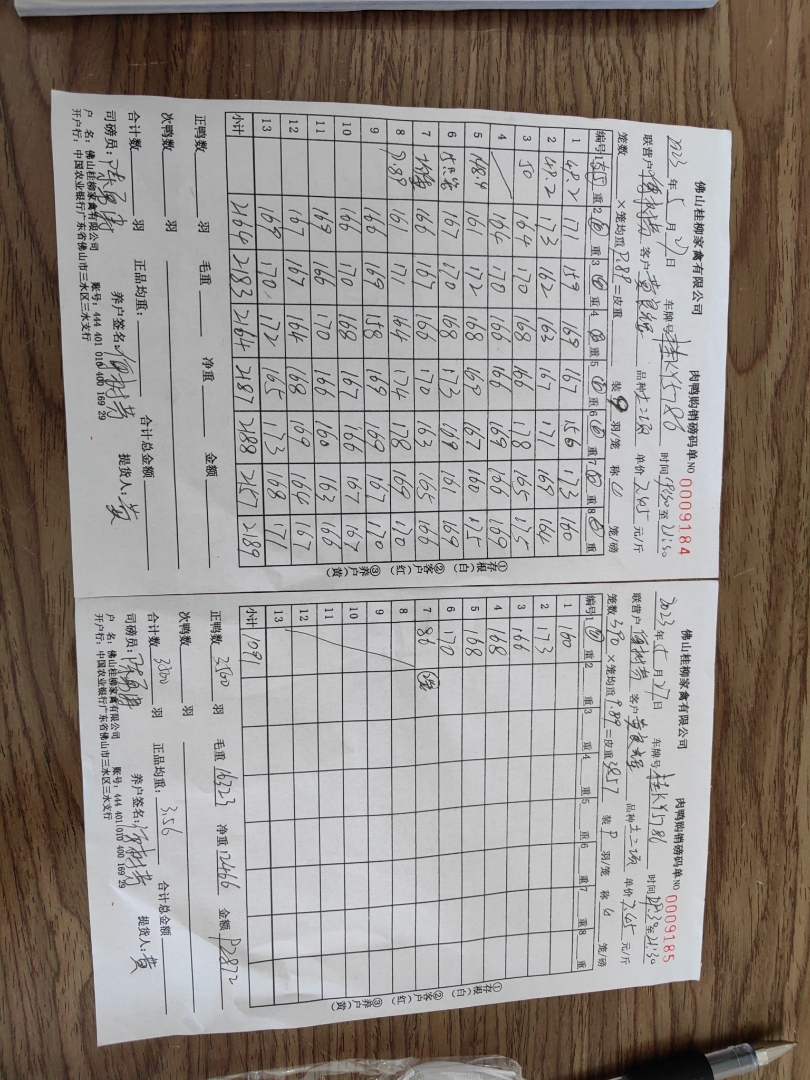 佛山桂柳家禽有限公司 肉鸭购销磅码单 NO 0009184
2023年5月27日 车牌号桂KY5786 时间 至21:30
联营户 客户 品种 单价7.45元/斤
笼数 ×笼均重9.89=皮重 装9羽/笼 称 笼/磅
编号 1 重2 重3 重4 重5 重6 重7 重8 重
1 48.2 171 159 169 167 156 173 160
2 48.2 173 162 163 167 171 169 164
3 50 164 170 168 166 178 165 175
4 164 170 166 166 169 166 169
5 148.4 161 172 168 169 167 160 175
6 167 170 168 173 169 161 169
7 166 167 166 170 163 165 166
8 9.89 161 171 164 174 178 169 170
9 166 169 158 169 169 167 170
10 166 170 168 167 166 167 167
11 169 166 170 166 160 163 166
12 167 167 164 168 169 164 167
13 169 170 172 165 173 168 171
小计 2164 2183 2164 2187 2188 2157 2189
①存根(白) ②客户(红) ③养户(黄)
正鸭数 羽 毛重 净重 金额
次鸭数 羽
合计数 羽 正品均重: 合计总金额
司磅员: 养户签名: 提货人:黄
户 名: 佛山桂柳家禽有限公司 账号: 444 401 010 400 169 29
开户行: 中国农业银行广东省佛山市三水区三水支行
佛山桂柳家禽有限公司 肉鸭购销磅码单 NO 0009185
2023年5月27日 车牌号桂KY5786 时间 至21:30
联营户 客户 品种 单价7.45元/斤
笼数390×笼均重9.89=皮重3857 装9羽/笼 称 笼/磅
编号 1 重2 重3 重4 重5 重6 重7 重8 重
1 160
2 173
3 166
4 168
5 168
6 170
7 86
8
9
10
11
12
13
小计 1091
①存根(白) ②客户(红) ③养户(黄)
正鸭数 羽 毛重16323 净重12466 金额92872
次鸭数 羽
合计数 羽 正品均重: 3.56 合计总金额
司磅员: 养户签名: 提货人:黄
户 名: 佛山桂柳家禽有限公司 账号: 444 401 010 400 169 29
开户行: 中国农业银行广东省佛山市三水区三水支行